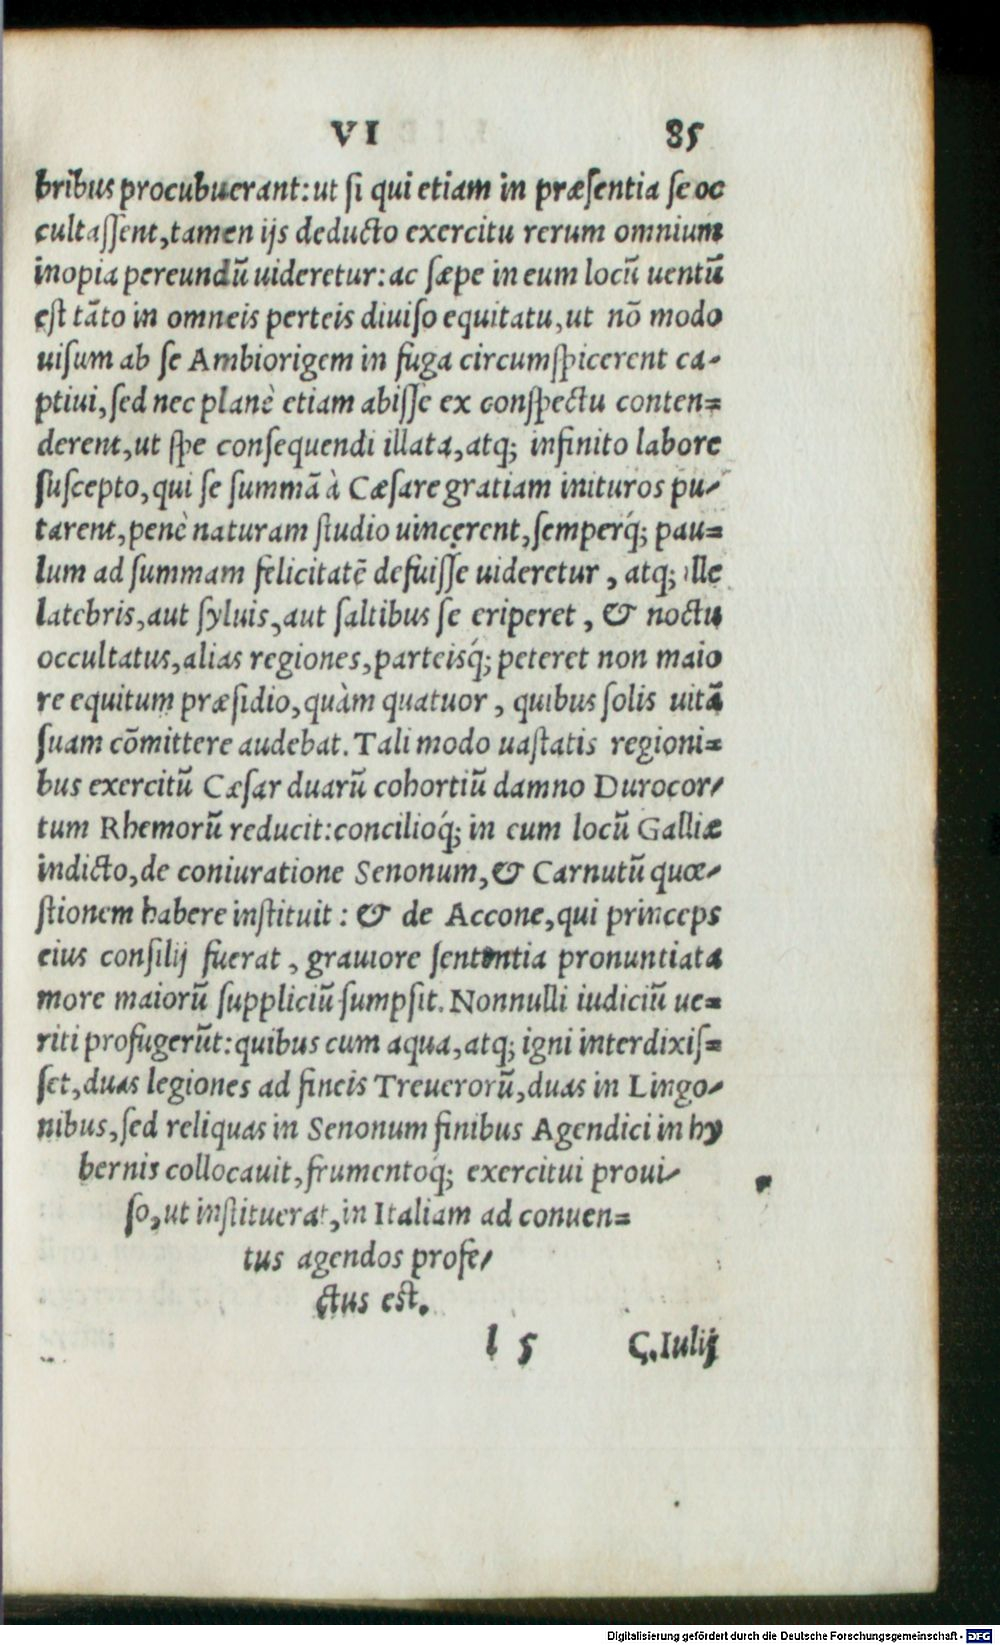 VI 85
bribus procubuerant: ut ſi qui etiam in præſentia ſe oc
cultaſſent, tamen ijs deducto exercitu rerum omnium
inopia pereundū uideretur: ac ſæpe in eum locū uentū
est tāto in omneis perteis diuiſo equitatu, ut nō modo
uiſum ab ſe Ambiorigem in fuga circumſpicerent ca-
ptiui, ſed nec planè etiam abiſſe ex conſpectu conten=
derent, ut ſpe conſequendi illata, atq; infinito labore
ſuſcepto, qui ſe ſummā à Cæſare gratiam inituros pu-
tarent, penè naturam ſtudio uincerent, ſemperq́; pau=
lum ad ſummam felicitatē defuiſſe uideretur, atq; ille
latebris, aut ſyluis, aut ſaltibus ſe eriperet, & noctu
occultatus, alias regiones, parteisq́; peteret non maio
re equitum præſidio, quàm quatuor, quibus ſolis uitā
ſuam cōmittere audebat. Tali modo uaſtatis regioni=
bus exercitū Cæſar duarū cohortiū damno Durocor-
tum Rhemorū reducit: concilioq́; in eum locū Galliæ
indicto, de coniuratione Senonum, & Carnutū quæ-
ſtionem habere inſtituit: & de Accone, qui princeps
eius conſilij fuerat, grauiore ſententia pronuntiata
more maiorū ſuppliciū ſumpſit. Nonnulli iudiciū ue=
riti profugerūt: quibus cum aqua, atq; igni interdixiſ=
ſet, duas legiones ad fineis Treuerorū, duas in Lingo-
nibus, ſed reliquas in Senonum finibus Agendici in hy
bernis collocauit, frumentoq́; exercitui proui-
ſo, ut inſtituerat, in Italiam ad conuen=
tus agendos profe-
ctus est.
l 5 C. Iulij
Digitalisierung gefördert durch die Deutsche Forschungsgemeinschaft - DFG